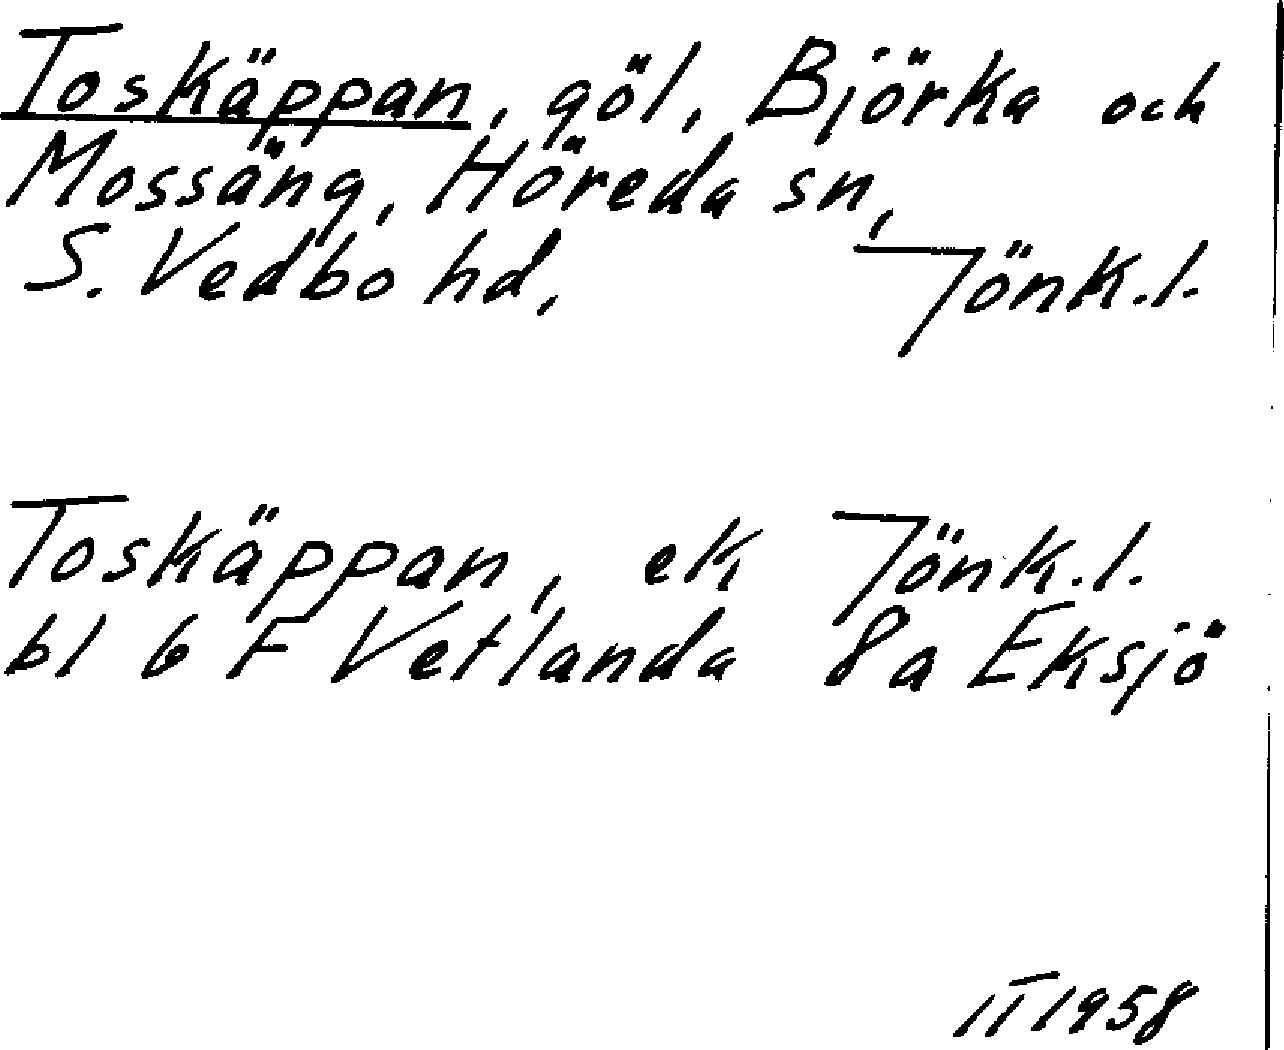 Toskäppan, göl, Björka och
Mossäng, Höreda sn,
S. Vedbo hd, Jönk.l.
Toskäppan, ek Jönk.l.
bl 6 F Vetlanda 8a Eksjö
IT 1958